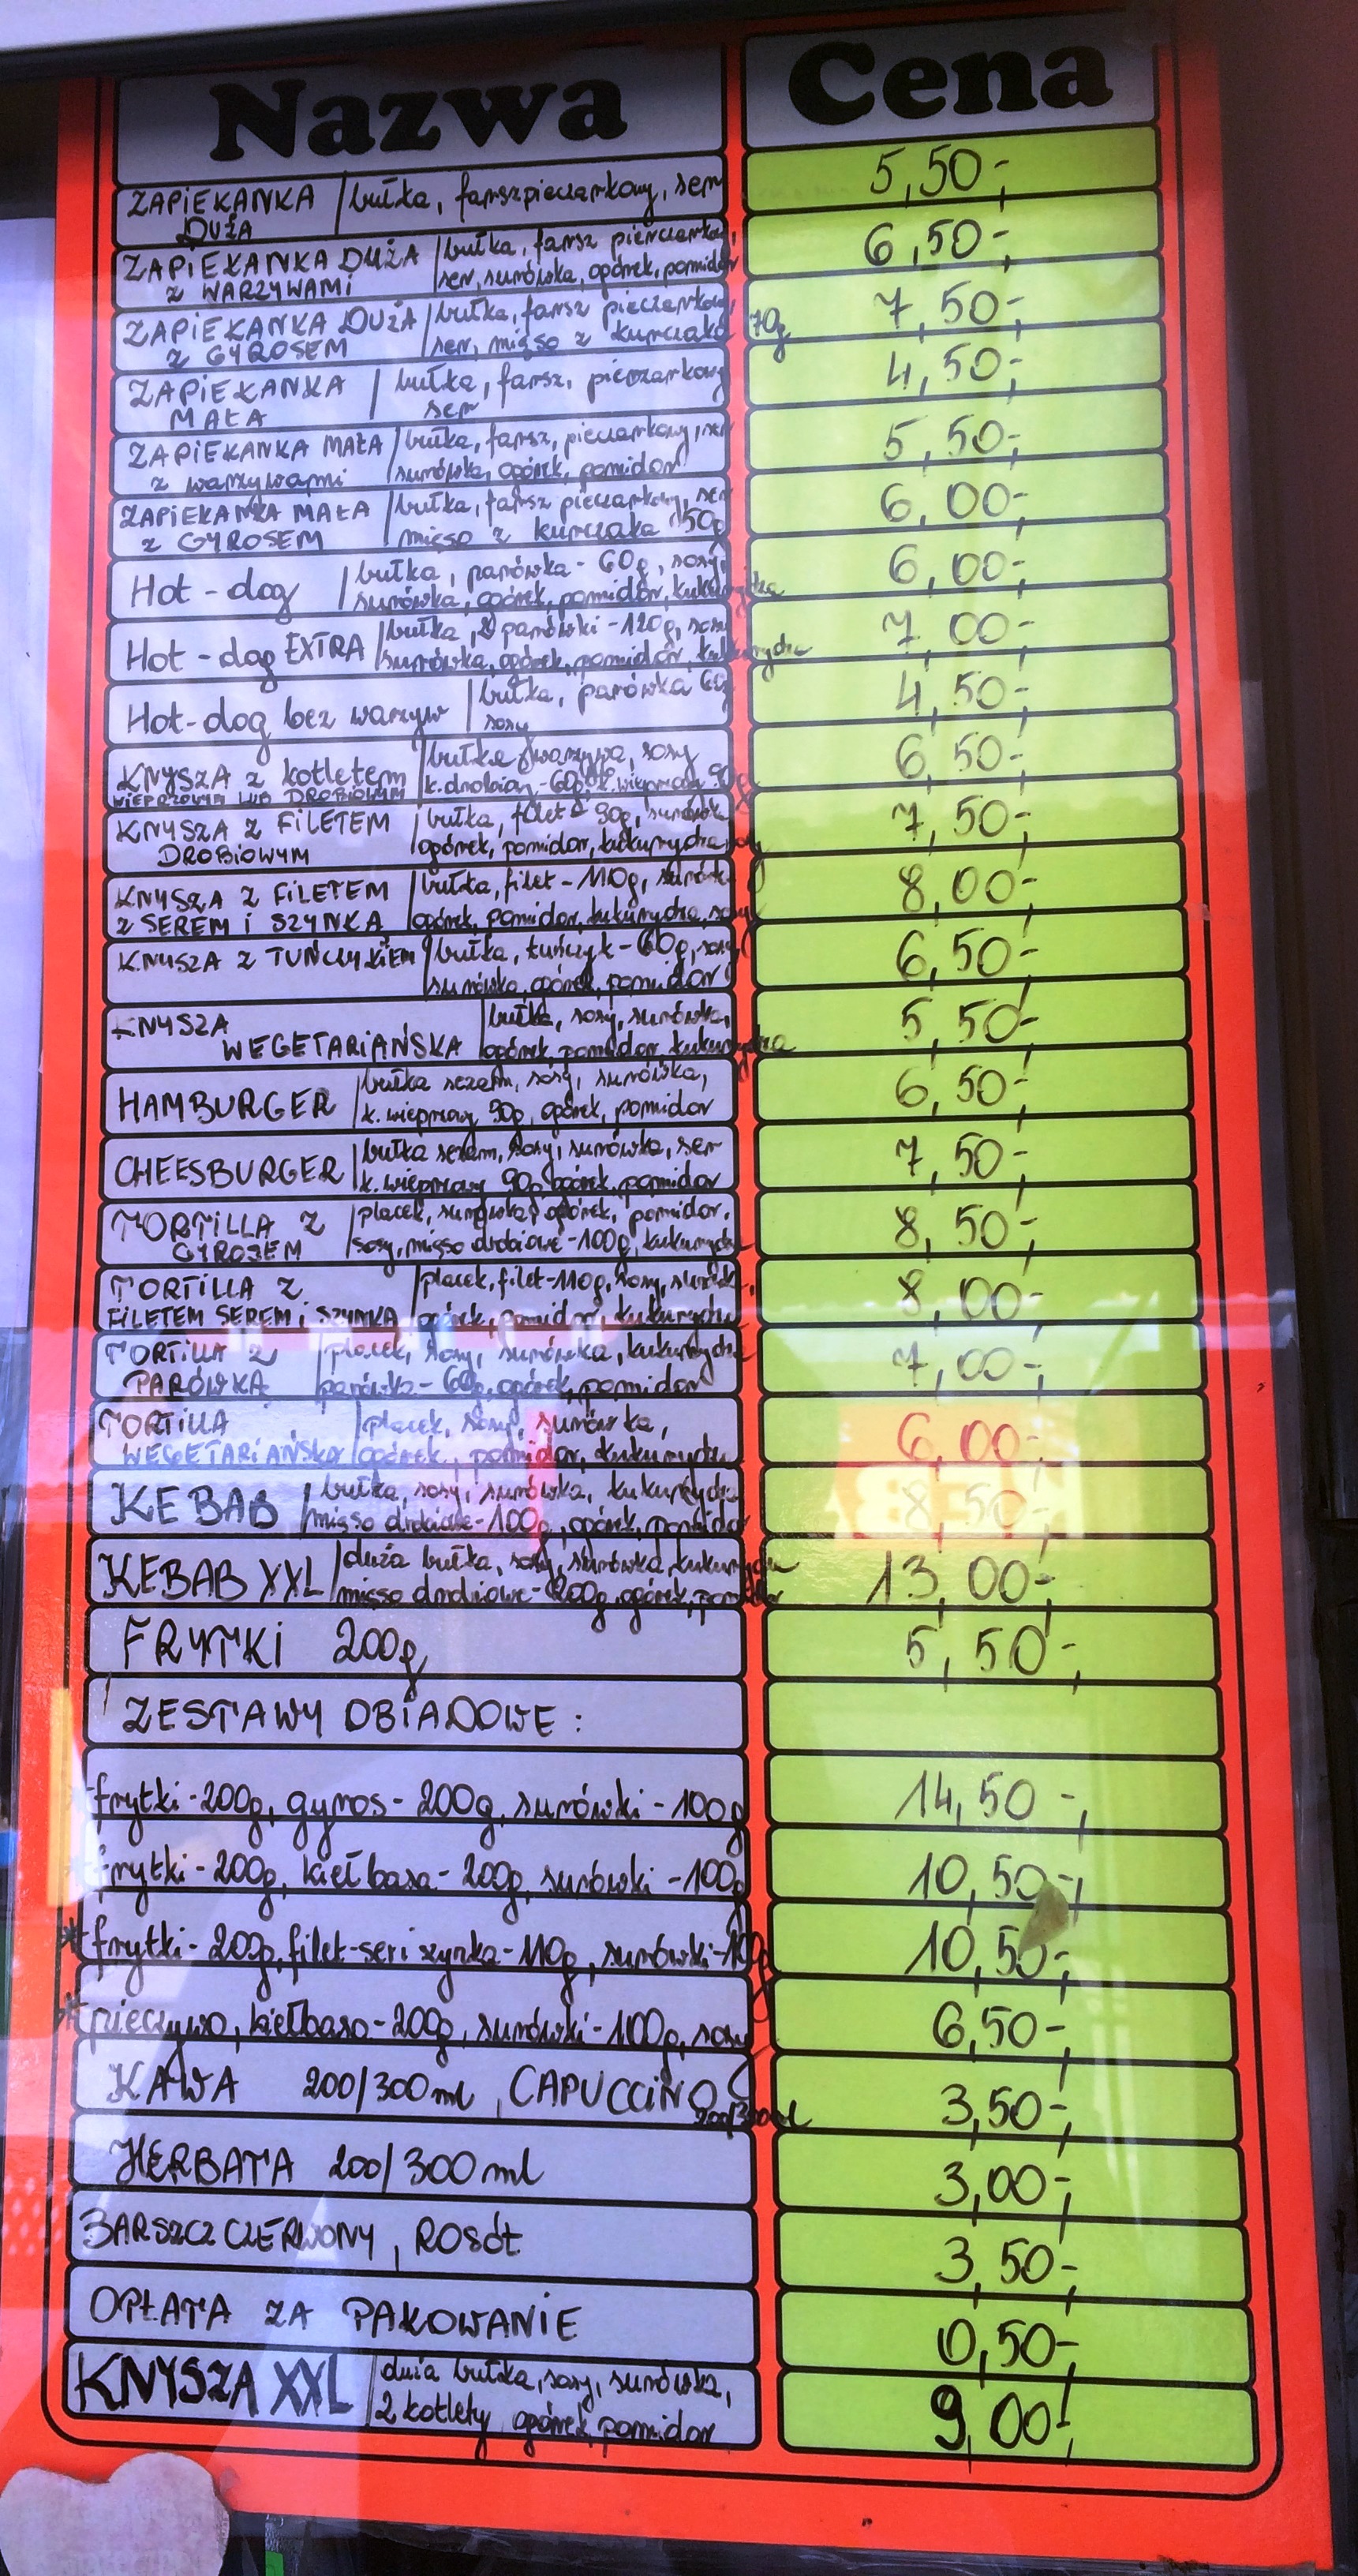 Nazwa Cena
ZAPIEKANKA DUŻA / bułka, farsz pieczarkowy, ser 5,50-,
ZAPIEKANKA DUŻA z WARZYWAMI / bułka, farsz pieczarkowy, ser, surówka, ogórek, pomidor 6,50-,
ZAPIEKANKA DUŻA z GYROSEM / bułka, farsz pieczarkowy, ser, mięso z kurczaka 70g 7,50-,
ZAPIEKANKA MAŁA / bułka, farsz, pieczarkowy ser 4,50-,
ZAPIEKANKA MAŁA z warzywami / bułka, farsz, pieczarkowy, ser surówka, ogórek, pomidor 5,50-,
ZAPIEKANKA MAŁA z GYROSEM / bułka, farsz pieczarkowy, ser mięso z kurczaka 50g 6,00-,
Hot-dog / bułka, parówka - 60g, sosy, surówka, ogórek, pomidor, kukurydza 6,00-,
Hot-dog EXTRA / bułka, 2 parówki - 120g, sosy surówka, ogórek, pomidor, kukurydza 7,00-,
Hot-dog bez warzyw / bułka, parówka 60g sosy 4,50-,
KNYSZA z kotletem WIEPRZOWYM LUB DROBIOWYM / bułka, warzywa, sosy k. drobiowy - 60g, k. wieprzowy 90g 6,50-,
KNYSZA Z FILETEM DROBIOWYM / bułka, filet - 90g, surówka ogórek, pomidor, kukurydza, sosy 7,50-,
KNYSZA Z FILETEM Z SEREM I SZYNKĄ / bułka, filet - 110g, surówka ogórek, pomidor, kukurydza, sosy 8,00-,
KNYSZA Z TUŃCZYKIEM / bułka, tuńczyk - 60g, sosy surówka, ogórek, pomidor 6,50-,
KNYSZA WEGETARIAŃSKA / bułka, sosy, surówka, ogórek, pomidor, kukurydza 5,50-,
HAMBURGER / bułka sezam, sosy, surówka, k. wieprzowy 90g, ogórek, pomidor 6,50-,
CHEESBURGER / bułka sezam, sosy, surówka, ser k. wieprzowy 90g, ogórek, pomidor 7,50-,
TORTILLA Z GYROSEM / placek, surówka, ogórek, pomidor, sosy, mięso drobiowe - 100g, kukurydza 8,50-,
TORTILLA Z FILETEM SEREM i SZYNKĄ / placek, filet - 110g, sosy, surówka, ogórek, pomidor, kukurydza 8,00-,
TORTILLA Z PARÓWKĄ / placek, sosy, surówka, kukurydza parówka - 60g, ogórek, pomidor 7,00-,
TORTILLA WEGETARIAŃSKA / placek, sosy, surówka, ogórek, pomidor, kukurydza 6,00-,
KEBAB / bułka, sosy, surówka, kukurydza mięso drobiowe - 100g, ogórek, pomidor 8,50-,
KEBAB XXL / duża bułka, sosy, surówka, kukurydza mięso drobiowe - 200g, ogórek, pomidor 13,00-,
FRYTKI 200g 5,50-,
ZESTAWY OBIADOWE:
* frytki - 200g, gyros - 200g, surówki - 100g 14,50-,
* frytki - 200g, kiełbasa - 200g, surówki - 100g 10,50-,
* frytki - 200g, filet-ser i szynka - 110g, surówki - 100g 10,50-,
* pieczywo, kiełbasa - 200g, surówki - 100g, sosy 6,50-,
KAWA 200/300ml, CAPUCCINO 200/300ml 3,50-,
HERBATA 200/300ml 3,00-,
BARSZCZ CZERWONY, ROSÓŁ 3,50-,
OPŁATA ZA PAKOWANIE 0,50-,
KNYSZA XXL / duża bułka, sosy, surówka, 2 kotlety, ogórek, pomidor 9,00-,